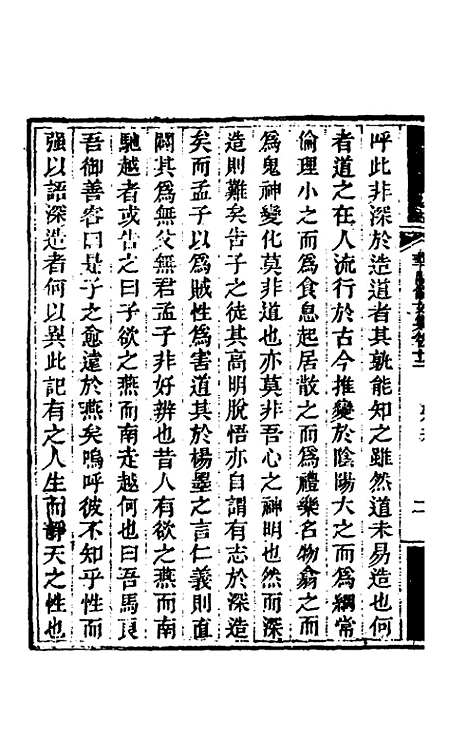 呼此非深於造道者其孰能知之雖然道未易造也何
者道之在人流行於古今推變於陰陽大之而爲綱常
倫理小之而爲食息起居散之而爲禮樂名物翕之而
爲鬼神變化莫非道也亦莫非吾心之神明也然而深
造則難矣告子之徒其高明脫悟亦自謂有志於深造
矣而孟子以爲賊性爲害道其於楊墨之言仁義則直
闢其爲無父無君孟子非好辨也昔人有欲之燕而南
馳越者或告之曰子欲之燕而南走越何也曰吾馬良
吾御善客曰是子之愈遠於燕矣嗚呼彼不知乎性而
强以語深造者何以異此記有之人生而靜天之性也